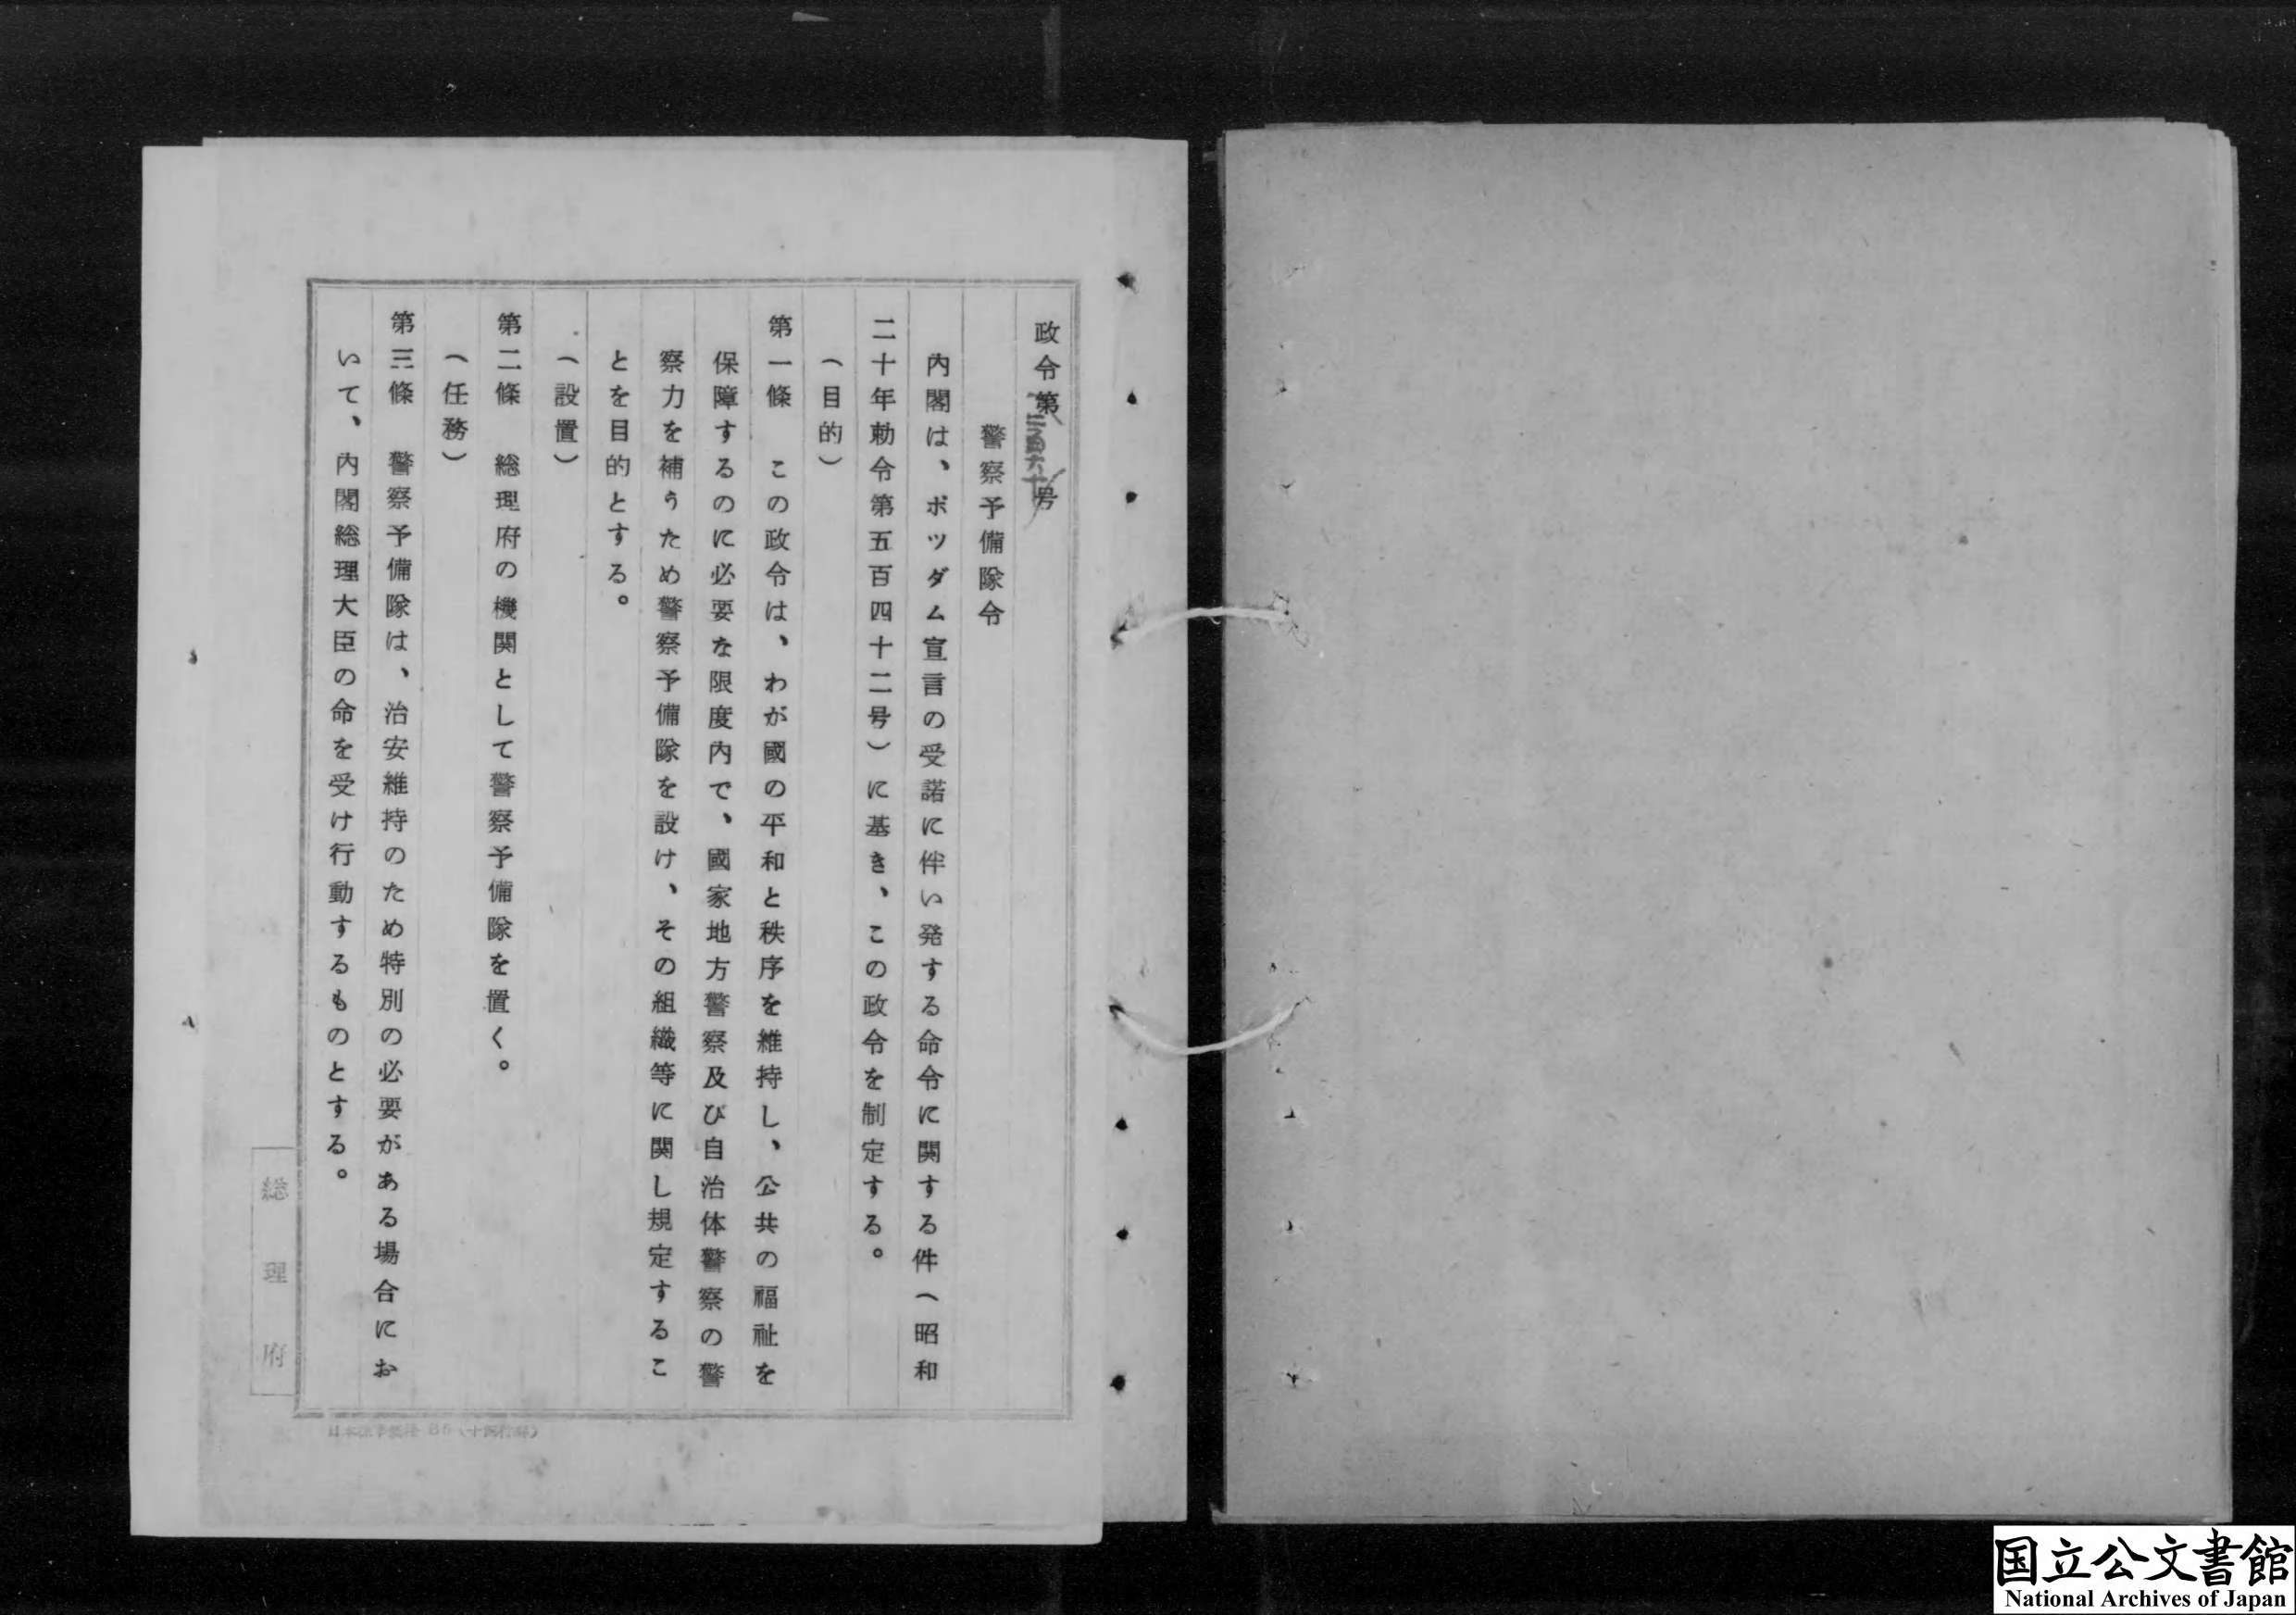 政令第二百六十号
警察予備隊令
内閣は、ポツダム宣言の受諾に伴い発する命令に関する件（昭和
二十年勅令第五百四十二号）に基き、この政令を制定する。
（目的）
第一條　この政令は、わが國の平和と秩序を維持し、公共の福祉を
保障するのに必要な限度内で、國家地方警察及び自治体警察の警
察力を補うため警察予備隊を設け、その組織等に関し規定するこ
とを目的とする。
（設置）
第二條　総理府の機関として警察予備隊を置く。
（任務）
第三條　警察予備隊は、治安維持のため特別の必要がある場合にお
いて、内閣総理大臣の命を受け行動するものとする。
総理府
国立公文書館
National Archives of Japan